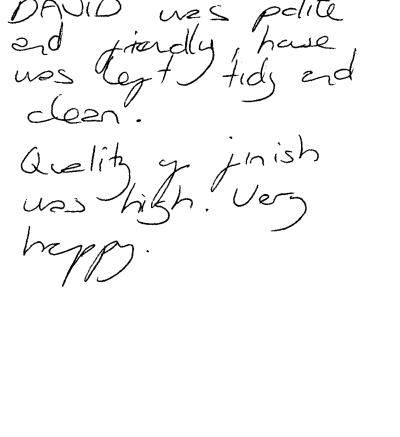 DAVID was polite
and friendly, house
was left tidy and
clean.
Quality of finish
was high. Very
happy.